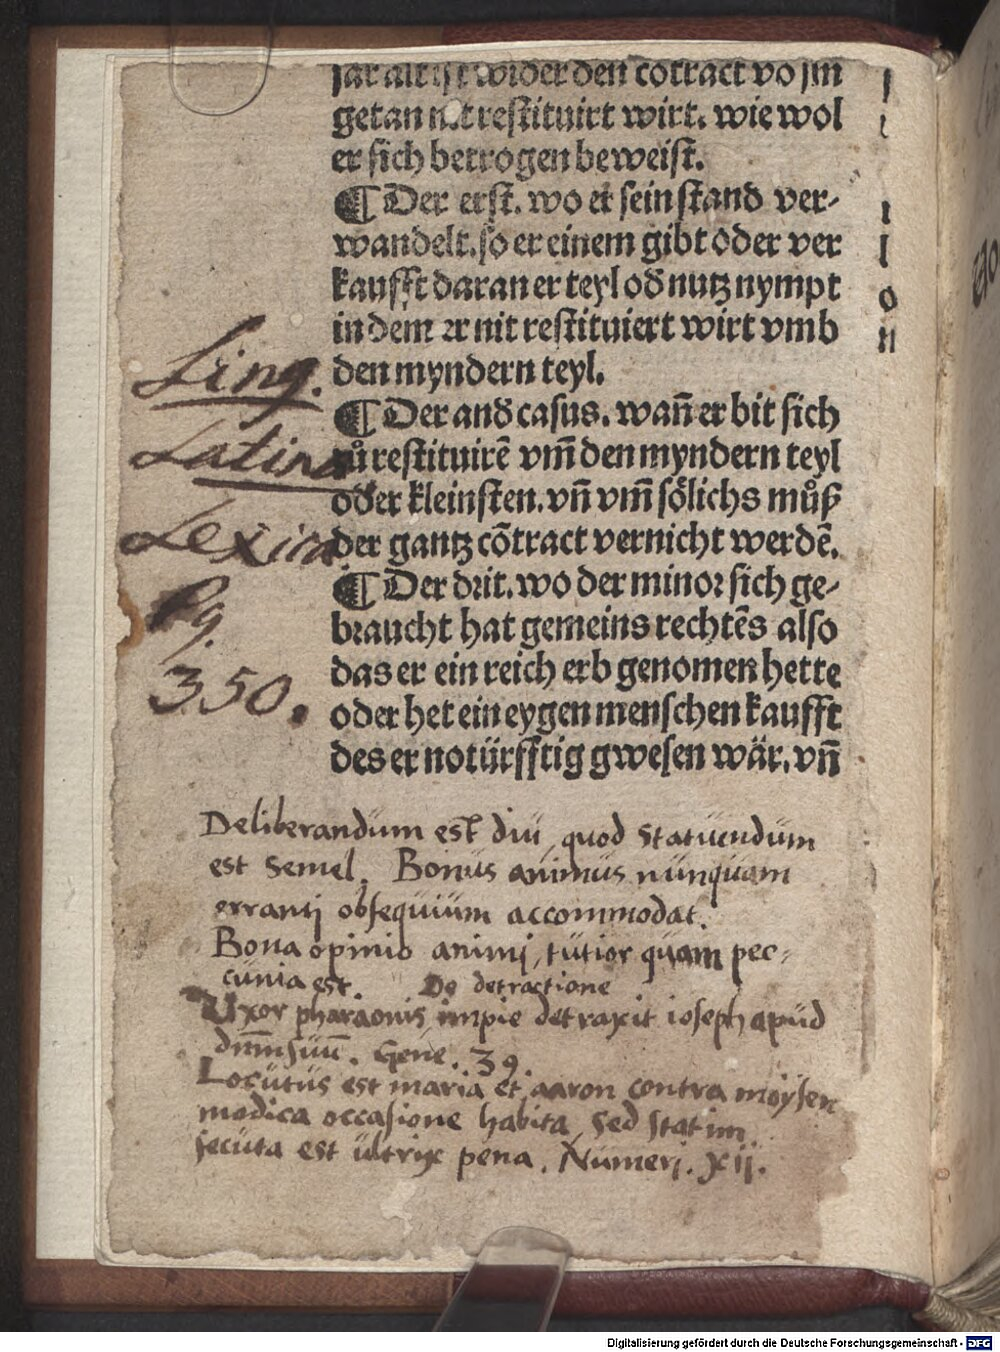 jar alt ist wider den cōtract vō jm
getan nit restituirt wirt. wie wol
er sich betrogen beweist.
¶ Der erst. wo er sein stand ver-
wandelt. so er einem gibt oder ver
kaufft daran er teyl od̄ nutz nympt
in dem er nit restituiert wirt vmb
den myndern teyl.
¶ Der and̄ casus. wañ er bit sich
zů restituirē vm̄ den myndern teyl
oder kleinsten. vñ vm̄ sölichs můß
der gantz cōtract vernicht werdē.
¶ Der drit. wo der minor sich ge-
braucht hat gemeins rechtēs also
das er ein reich erb genomen hette
oder het ein eygen menschen kaufft
des er notürfftig gwesen wär. vñ
Ling.
Latina
Lexica
Pg.
350.
Deliberandum est diu, quod statuendum
est semel. Bonus animus nunquam
erranti obsequium accommodat.
Bona opinio animi, tutior quam pec-
cunia est. De detractione
Uxor pharaonis impie detraxit ioseph apud
dnm̄ suū. Gene. 39.
Locutus est maria et aaron contra moysen
modica occasione habita, sed statim
secuta est ultrix pena. Numeri. xij.
Digitalisierung gefördert durch die Deutsche Forschungsgemeinschaft - DFG